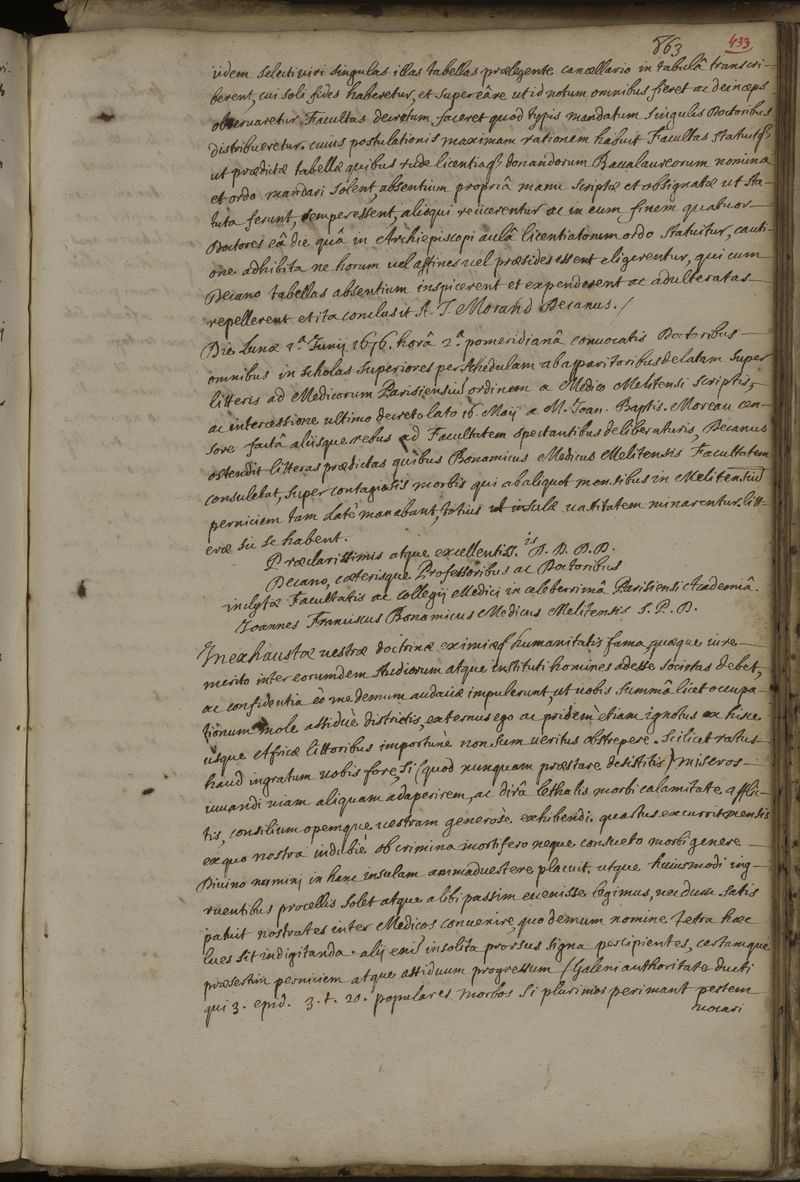 863
433
iidem selecti viri singulas illas tabellas prælegente cancellario in tabulâ transcri-
berent, cui soli fides haberetur, et super eâ re ut id notum omnibus fieret ac deinceps
observaretur Facultas decretum faceret quod typis mandatum singulis Doctoribus
distribueretur. cuius postulationis maximam rationem habuit Facultas statuitq;
ut prædictæ tabellæ quibus rude licentiaq; donandorum Baccalaureorum nomina
et ordo mandari solent, absentium propriâ manu scriptæ et obsignatæ ut sta-
tuta ferunt, semper essent, alioqui reiicerentur ac in eum finem quatuor
Doctores eâ die quâ in Archiepiscopi aulâ licentiatorum ordo statuitur, cauti-
one adhibita ne horum vel affines vel præsides essent eligerentur, qui cum
Decano tabellas absentium inspicerent et expenderent ac adulteratas
repellerent et ita conclusit A. J. Morand Decanus. /
Die Lunæ 1.ª Junij 1676. horâ 2.ª pomeridianâ convocatis Doctoribus
omnibus in scholas superiores per schedulam ab apparitoribus delatam super
litteris ad Medicorum Parisiensiũ ordinem a Medico Melitensi scriptis,
ac intercessione ultimo decreto lato 16. Maij a M. Joan. Baptis. Moreau cen-
sore factâ aliisque rebus ad Facultatem spectantibus deliberaturis, Decanus
ostendit litteras prædictas quibus Bonamicus Medicus Melitensis Facultatem
consulebat, super contagiosis morbis qui ab aliquot mensibus in Melitensiũ
perniciem tam latè manabant, totius ut insulæ vastitatem minarentur. litt-
eræ sic se habent.
Præclarissimis atque excellentiss.is D. D. D. D.
Decano, cæterisque Professoribus ac Doctoribus
inclytæ Facultatis ac collegij Medici in celeberrimâ Parisiensi Academiâ.
Joannes Franciscus Bonamicus Medicus Melitensis S. P. D.
Inexhaustæ vestræ doctrinæ eximiæq; humanitatis fama, quæque iure
merito inter eorumdem studiorum atque instituti homines adesse societas debet,
ac confidentia eò me demum audaciæ impulerunt, ut vobis summâ licet occupa-
tionum mole assiduè districtis, externus ego ac pridem etiam ignotus ex hisce
usque Africæ littoribus importunè non sum veritus obstrepere. scilicet ratus
haud ingratum vobis fore, si (quod nunquam præstare desistitis) miseros
iuvandi viam aliquam adaperirem, ac dirâ lethalis morbi calamitate afflic-
tis, consilium opemque vestram generosè exhibendi. quartus excurrit mensis
ex quo nostra indubiè ob crimina mortifero neque consueto morbi genere
Divino numini in hanc insulam animadvertere placuit. utque huiusmodi ing-
ruentibus procellis solet atque alibi passim evenisse legimus, necdum satis
patuit nostrates inter Medicos convenire, quo demum nomine tetra hæc
lues sit indigitanda. alij enĩ insolita prorsus signa percipientes, certamque
præsertim perniciem atque assiduum progressum (Galeni authoritate ducti
qui 3. epid. 3. t. 20. populares morbos si plurimos perimant pestem
vocari